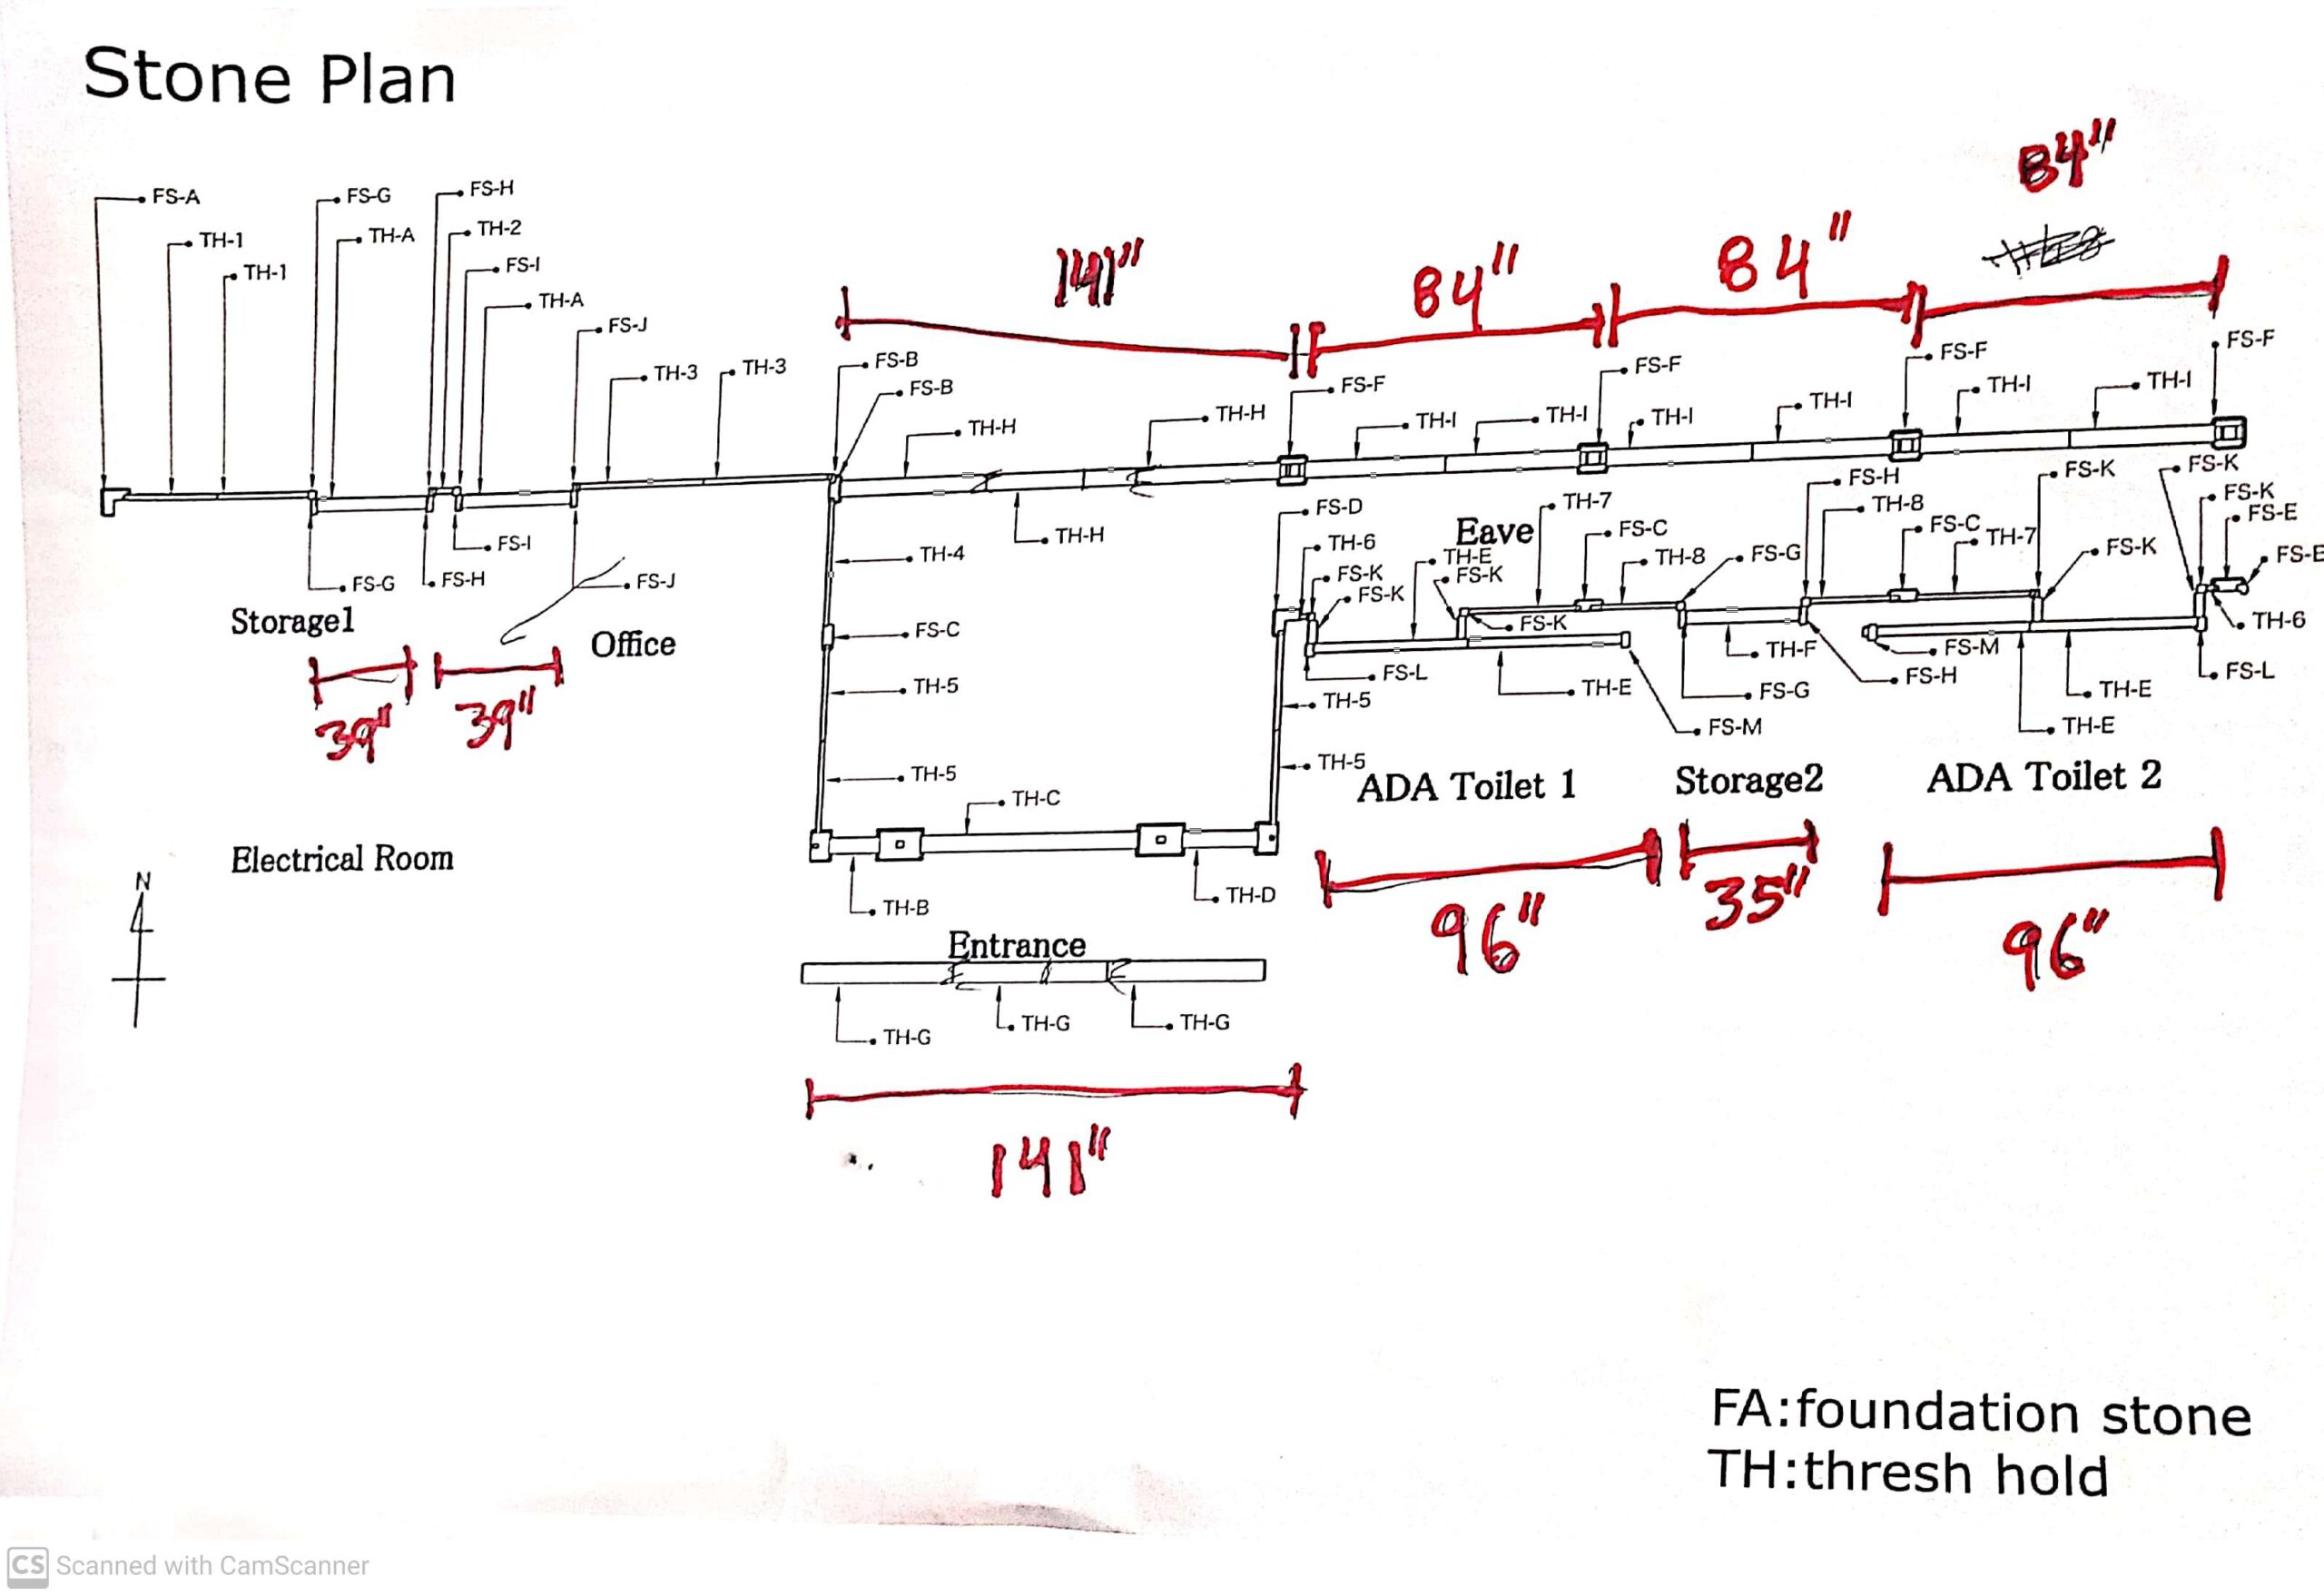 Stone Plan
84"
FS-A
FS-G
FS-H
TH-1
TH-A
TH-2
TH-1
FS-I
141"
84"
84"
TH-A
FS-J
TH-3
TH-3
FS-B
FS-B
FS-F
FS-F
FS-F
FS-F
TH-H
TH-H
TH-I
TH-I
TH-I
TH-I
TH-I
TH-I
FS-I
TH-H
FS-G
FS-H
FS-J
Storage1
Office
39"
39"
TH-4
FS-C
TH-5
TH-5
FS-D
TH-6
FS-K
FS-K
Eave
TH-E
FS-K
TH-7
FS-C
TH-8
FS-G
FS-K
FS-H
TH-8
FS-C
TH-7
FS-K
FS-K
FS-K
FS-K
FS-E
FS-E
TH-6
FS-L
TH-E
TH-F
FS-G
FS-M
FS-H
FS-M
TH-E
TH-E
FS-L
TH-5
TH-5
ADA Toilet 1
Storage2
ADA Toilet 2
TH-C
Electrical Room
N
TH-B
TH-D
96"
35"
96"
Entrance
TH-G
TH-G
TH-G
141"
FA:foundation stone
TH:thresh hold
CS Scanned with CamScanner